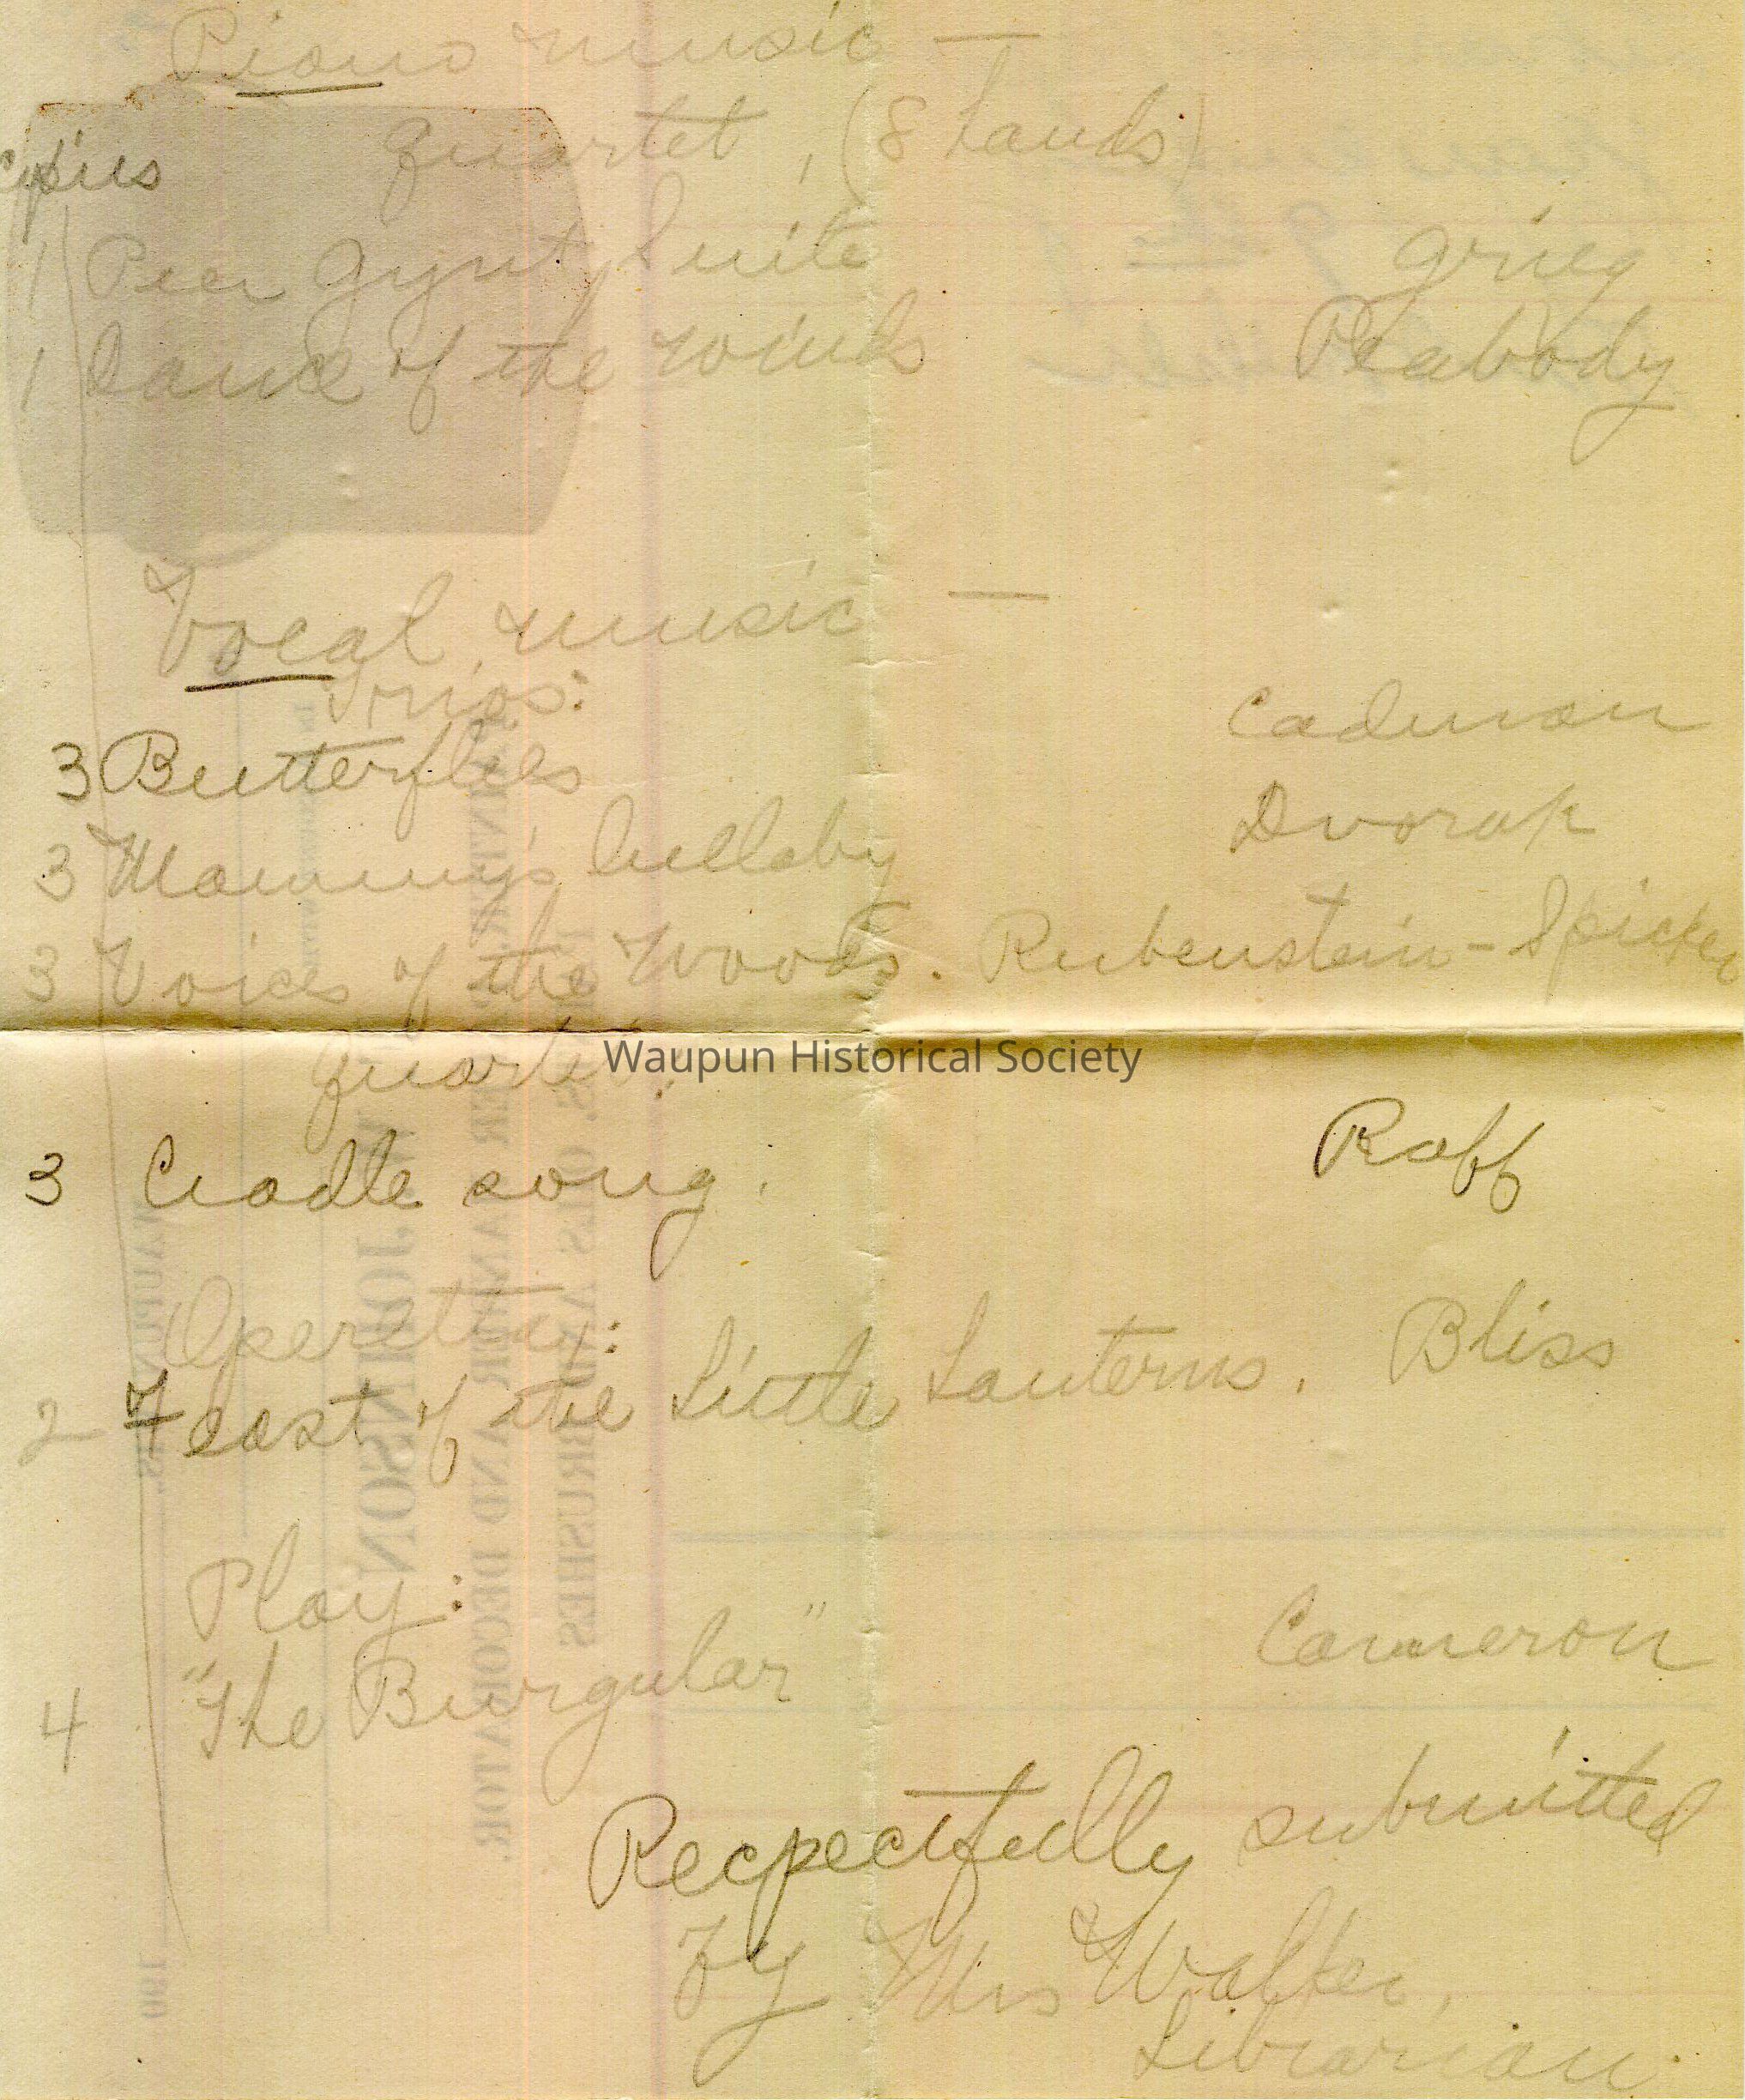 Piano music —
Quartet, (8 hands)
copies
1 Peer Gynt Suite Grieg
1 Dance of the Winds Peabody
Vocal music —
Trios:
3 Butterflies Cadman
3 Mammy's lullaby Dvorak
3 Voices of the Woods. Rubenstein - Spicker
Waupun Historical Society
Quartet:
3 Cradle song. Raff
Operetta:
2 Feast of the Little Lanterns. Bliss
Play:
4 "The Burgular" Cameron
Recpectfully submitted
by Mrs
Librarian.
JOHNSON
PAINTER, PAPER HANGER AND DECORATOR.
OILS AND BRUSHES
WAUPUN, WIS.
190